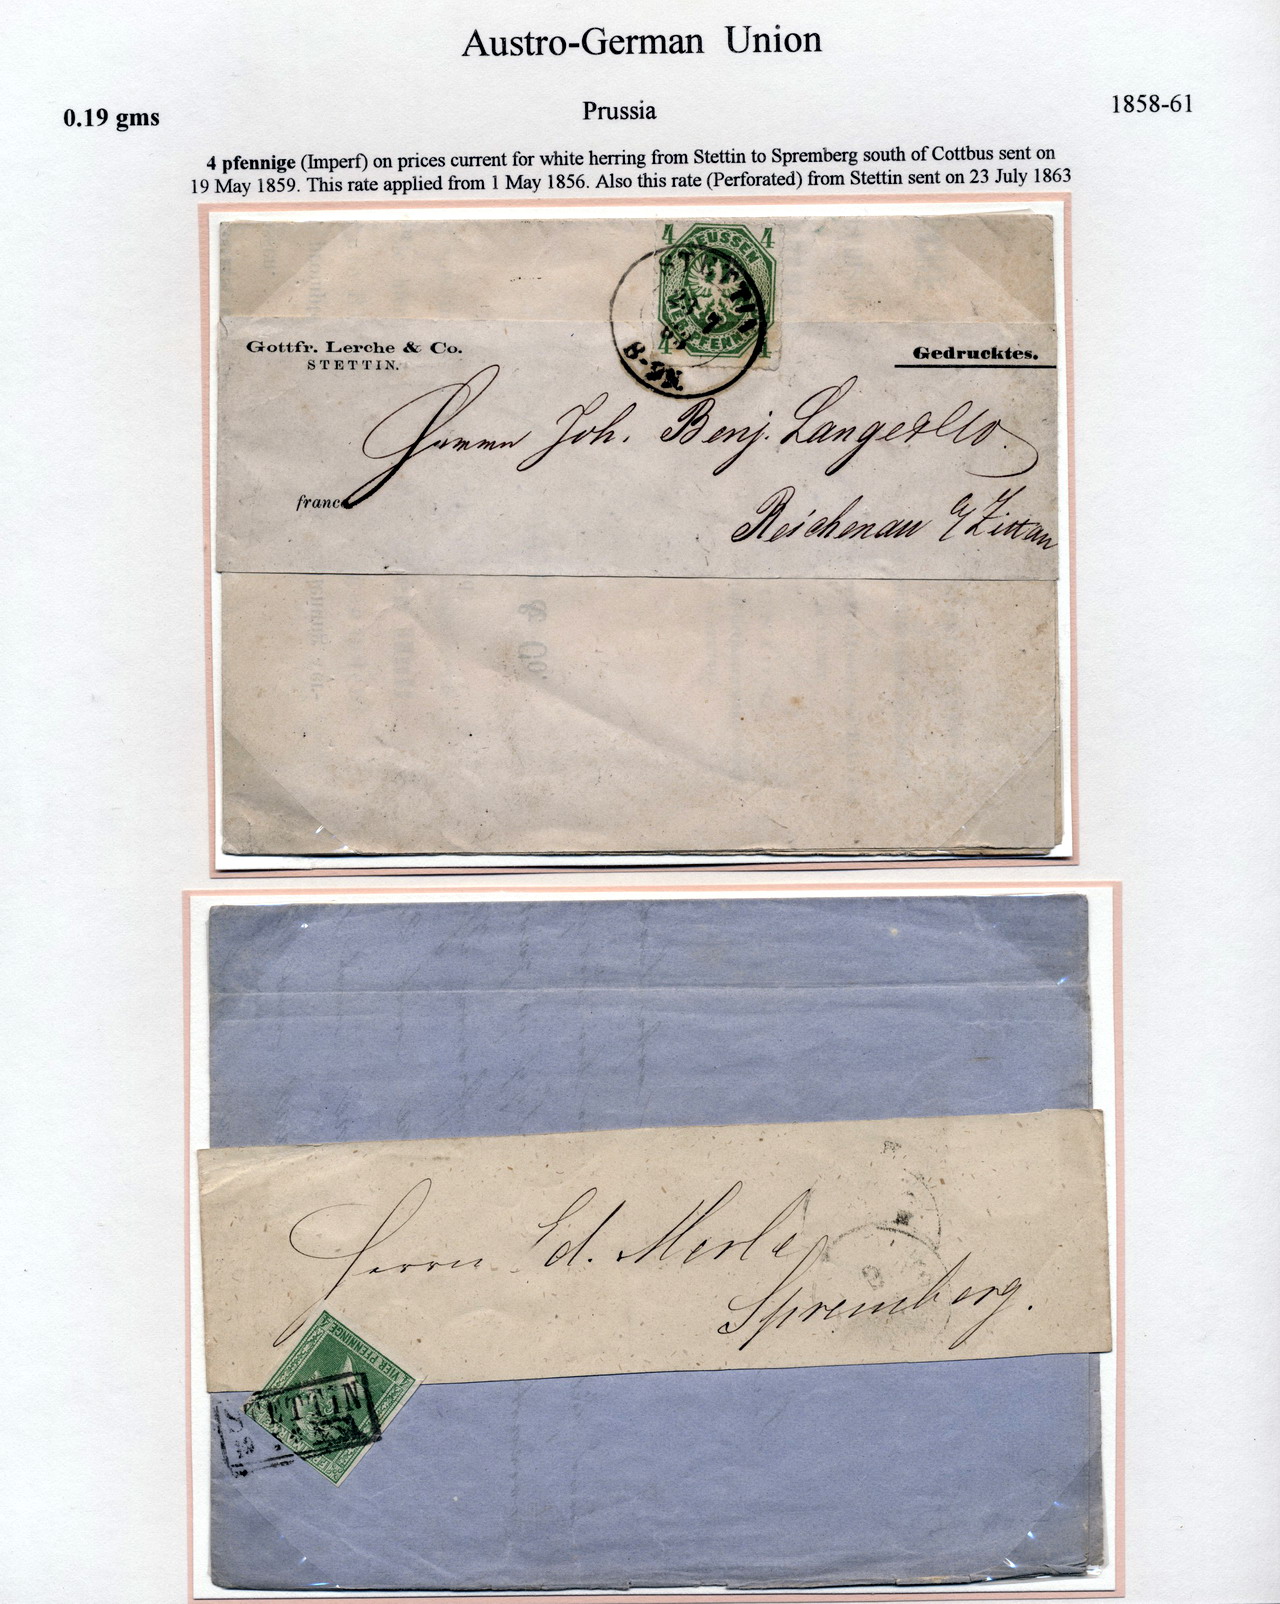 Austro-German Union
0.19 gms
Prussia
1858-61
4 pfennige (Imperf) on prices current for white herring from Stettin to Spremberg south of Cottbus sent on
19 May 1859. This rate applied from 1 May 1856. Also this rate (Perforated) from Stettin sent on 23 July 1863
4 4
PREUSSEN
STETTIN
23 7
4 4
8-9N.
Gottfr. Lerche & Co.
STETTIN.
Gedrucktes.
Herrn Joh. Benj. Lange & Co.
franco
Reichenau a/Zittau
& Co.
Herrn Ed. Merle
Spremberg.
4 VIER PFENNINGE 4
STETTIN
19